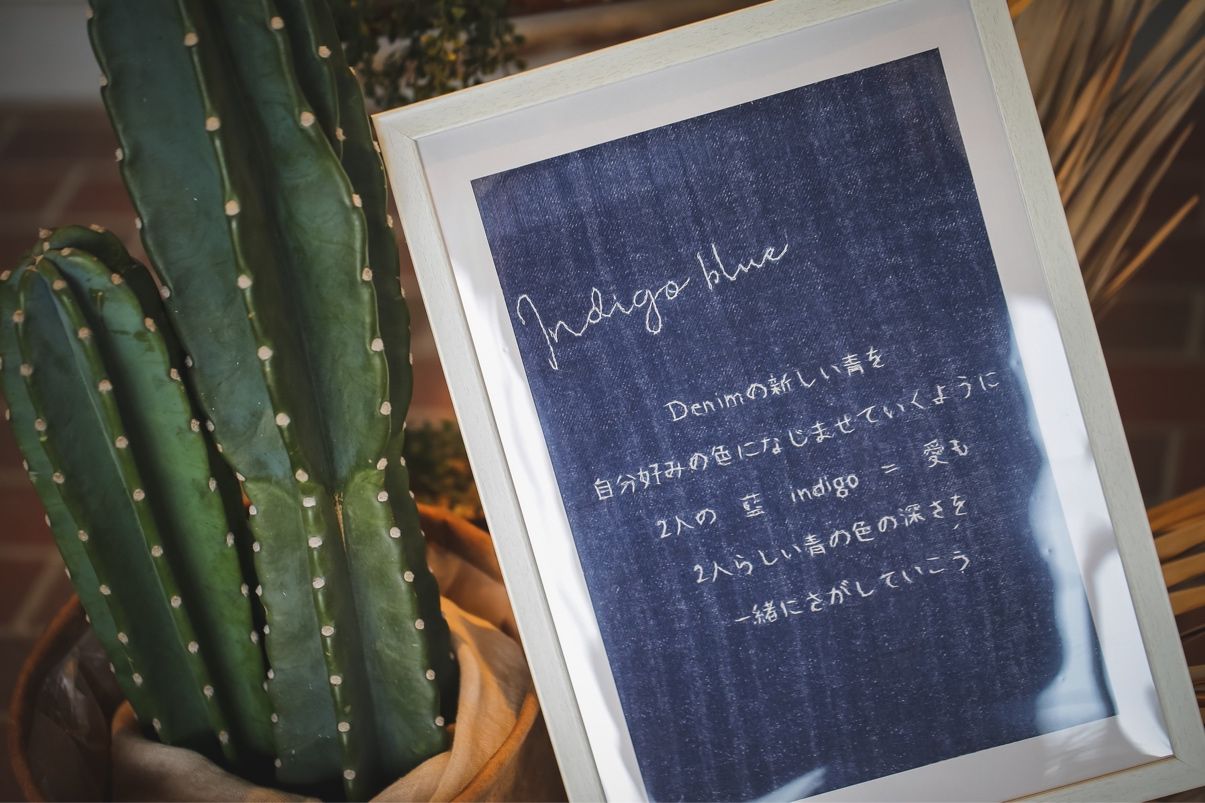 Indigo blue
Denimの新しい青を
自分好みの色になじませていくように
2人の 藍 indigo = 愛も
2人らしい青の色の深さを、
一緒にさがしていこう